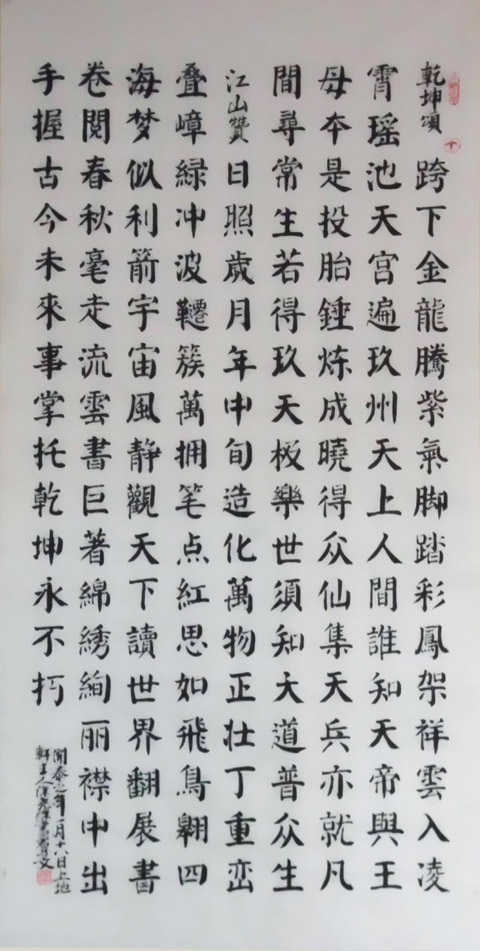 乾坤頌 跨下金龍騰紫氣脚踏彩鳳架祥雲入凌
霄瑶池天宫遍玖州天上人間誰知天帝與王
母夲是投胎錘炼成曉得众仙集天兵亦就凡
間尋常生若得玖天极樂世須知大道普众生
江山贊 日照歲月年中旬造化萬物正壮丁重峦
叠嶂緑冲波韆簇萬拥笔点紅思如飛鳥翱四
海梦似利箭宇宙風静觀天下讀世界翻展書
卷閲春秋毫走流雲書巨著綿绣絢丽襟中出
手握古今未來事掌托乾坤永不朽
月十八日上地